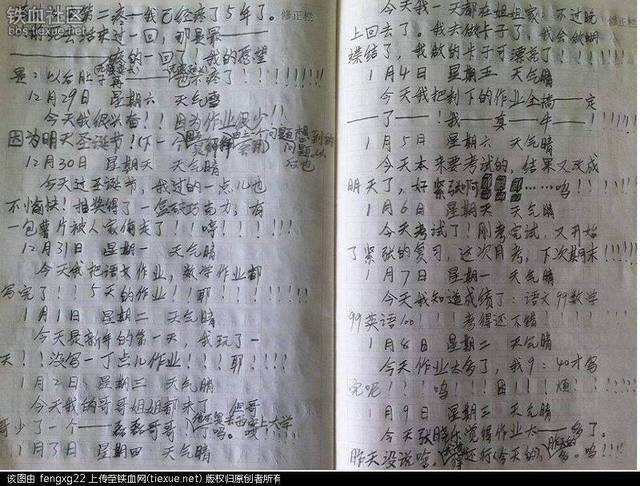 铁血社区
bbs.tiexue.net
第二疼—我已经疼了5年了。
过一回,那是累——
的一回了,我的愿望
是:以后肚子再也不疼了!!!!!!!!!
12月29日 星期六 天气雪
今天我很兴奋!!因为作业很少!!
因为明天圣诞节!
12月30日 星期天 天气晴
今天过圣诞节,我过的一点儿也
不愉快!抽奖得了一盒破巧克力,有
一包薯片被人家偷走了!!哼!!!!!!
12月31日 星期一 天气晴
今天我把语文作业,数学作业都
写完了!!5天的作业!!耶!!!!!!!!
1月1日 星期二 天气晴
今天是新年的第一天,我玩了一
天!!没写一丁点儿作业!!!耶!!!
1月2日 星期三 天气晴
今天我的哥哥姐姐都来了,但哥
哥少了一个——磊磊哥哥!
1月3日 星期四 天气晴
修正栏
今天我一天都在姐姐家,不过晚
上回去了。我去做卡子了,我会做蝴
蝶结了,我做的卡子可漂亮了!!!!!
1月4日 星期五 天气晴
今天我把剩下的作业全搞——定
——了!我——真——牛!!!!!!!!
1月5日 星期六 天气晴
今天本来要考试的,结果又改成
明天了,好紧张啊……呜!!!!!
1月6日 星期天 天气晴
今天考试了!刚考完试,又开始
了紧张的复习,这次月考,下次期末!!!
1月7日 星期一 天气晴
今天我知道成绩了:语文99数学
99英语100!!!考得还不错
1月8日 星期二 天气晴
今天作业太多了,我9:40才写
完呢!!!呜!!!!!!烦!!!!!
1月9日 星期三 天气晴
今天张乐觉得作业太——多了。
昨天没说啥。
修正栏
该图由 fengxg22 上传至铁血网(tiexue.net) 版权归原创者所有